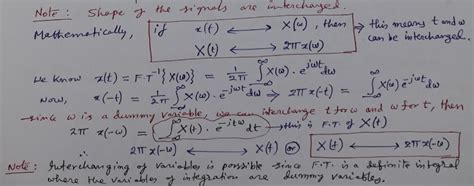 Note: Shape of the signals are interchanged.
Mathematically, if x(t) ⟷ X(ω), then → this means t and ω
X(t) ⟷ 2π x(ω) can be interchanged.
We know x(t) = F.T⁻¹{X(ω)} = 1/2π ∫_{-∞}^{∞} X(ω). e^{jωt} dω
Now, x(-t) = 1/2π ∫_{-∞}^{∞} X(ω). e^{-jωt} dω ⇒ 2π x(-t) = ∫_{-∞}^{∞} X(ω) e^{-jωt} dω
→ since ω is a dummy variable, we can interchange t for ω and ω for t, then
2π x(-ω) = ∫_{-∞}^{∞} X(t). e^{-jtω} dt → this is F.T. of X(t)
∴ 2π x(-ω) ⟷ X(t) or X(t) ⟷ 2π x(-ω)
Note: Interchanging of variables is possible since F.T. is a definite integral
where the variables of integration are dummy variables.